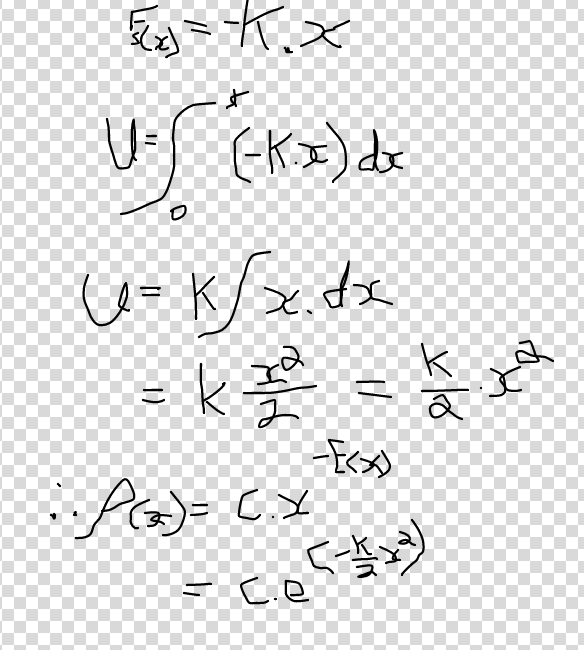 F_s(x) = -K.x
U = ∫_0^x (-K.x) dx
U = K ∫ x.dx
= k x^2/2 = K/2 . x^2
∴ P(x) = C.x^(-E(x))
= C.e^(-K/2 x^2)